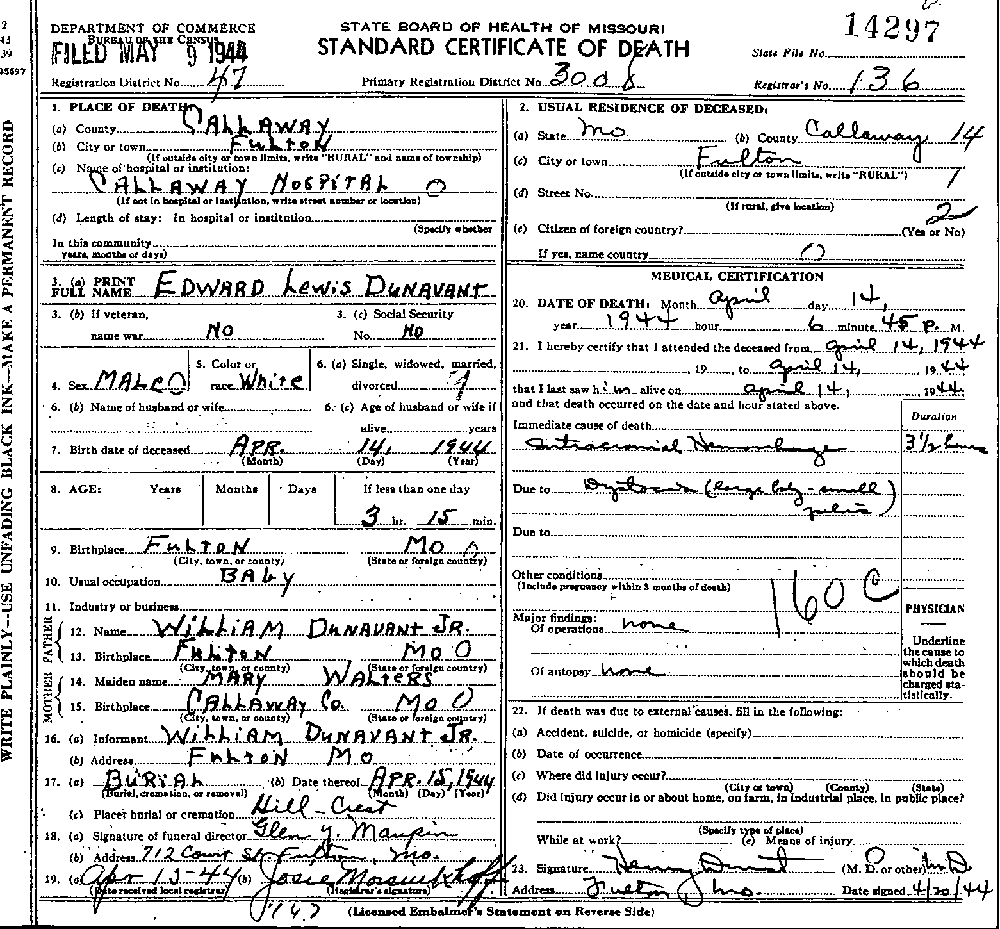 DEPARTMENT OF COMMERCE
BUREAU OF THE CENSUS
FILED MAY 9 1944
Registration District No. 47
STATE BOARD OF HEALTH OF MISSOURI
STANDARD CERTIFICATE OF DEATH
Primary Registration District No. 3008
14297
State File No.
Registrar's No. 136
2
39
WRITE PLAINLY--USE UNFADING BLACK INK--MAKE A PERMANENT RECORD
1. PLACE OF DEATH:
(a) County CALLAWAY
(b) City or town FULTON
(If outside city or town limits, write "RURAL" and name of township)
(c) Name of hospital or institution:
CALLAWAY HOSPITAL 0
(If not in hospital or institution, write street number or location)
(d) Length of stay: In hospital or institution
(Specify whether
In this community
years, months or days)
3. (a) PRINT FULL NAME EDWARD LEWIS DUNAVANT
3. (b) If veteran, name war NO
3. (c) Social Security No. NO
4. Sex MALE 0
5. Color or race White
6. (a) Single, widowed, married, divorced 1
6. (b) Name of husband or wife
6. (c) Age of husband or wife if alive years
7. Birth date of deceased APR. 14, 1944
(Month) (Day) (Year)
8. AGE: Years Months Days If less than one day
3 hr. 15 min.
9. Birthplace FULTON MO 0
(City, town, or county) (State or foreign country)
10. Usual occupation BABY
11. Industry or business
FATHER
12. Name WILLIAM DUNAVANT JR.
13. Birthplace FULTON MO 0
(City, town, or county) (State or foreign country)
MOTHER
14. Maiden name MARY WALTERS
15. Birthplace CALLAWAY CO. MO 0
(City, town, or county) (State or foreign country)
16. (a) Informant WILLIAM DUNAVANT JR.
(b) Address FULTON MO
17. (a) BURIAL (b) Date thereof APR. 15, 1944
(Burial, cremation, or removal) (Month) (Day) (Year)
(c) Place: burial or cremation Hill-Crest
18. (a) Signature of funeral director Glen Y. Maupin
(b) Address 712 Court St. Fulton, Mo.
19. (a) Apr 15-44 (b) Josie
(Date received local registrar) (Registrar's signature)
2. USUAL RESIDENCE OF DECEASED:
(a) State Mo (b) County Callaway 14
(c) City or town Fulton
(If outside city or town limits, write "RURAL") 1
(d) Street No.
(If rural, give location) 2
(e) Citizen of foreign country? (Yes or No)
If yes, name country 0
MEDICAL CERTIFICATION
20. DATE OF DEATH: Month April day 14,
year 1944 hour 6 minute 45 P. M.
21. I hereby certify that I attended the deceased from April 14, 1944
, 19 to April 14, 1944
that I last saw him alive on April 14, 1944
and that death occurred on the date and hour stated above.
Duration
Immediate cause of death
Intracranial Hemorrhage 3 1/2 hrs
Due to Dystocia (large baby-small pelvis)
Due to
Other conditions
(Include pregnancy within 3 months of death)
160 C
Major findings:
Of operations none
Of autopsy none
PHYSICIAN
Underline the cause to which death should be charged statistically.
22. If death was due to external causes, fill in the following:
(a) Accident, suicide, or homicide (specify)
(b) Date of occurrence
(c) Where did injury occur?
(City or town) (County) (State)
(d) Did injury occur in or about home, on farm, in industrial place, in public place?
(Specify type of place)
While at work? (e) Means of injury
23. Signature Henry (M. D. or other) M.D.
Address Fulton Mo. Date signed 4/20/44
(Licensed Embalmer's Statement on Reverse Side)